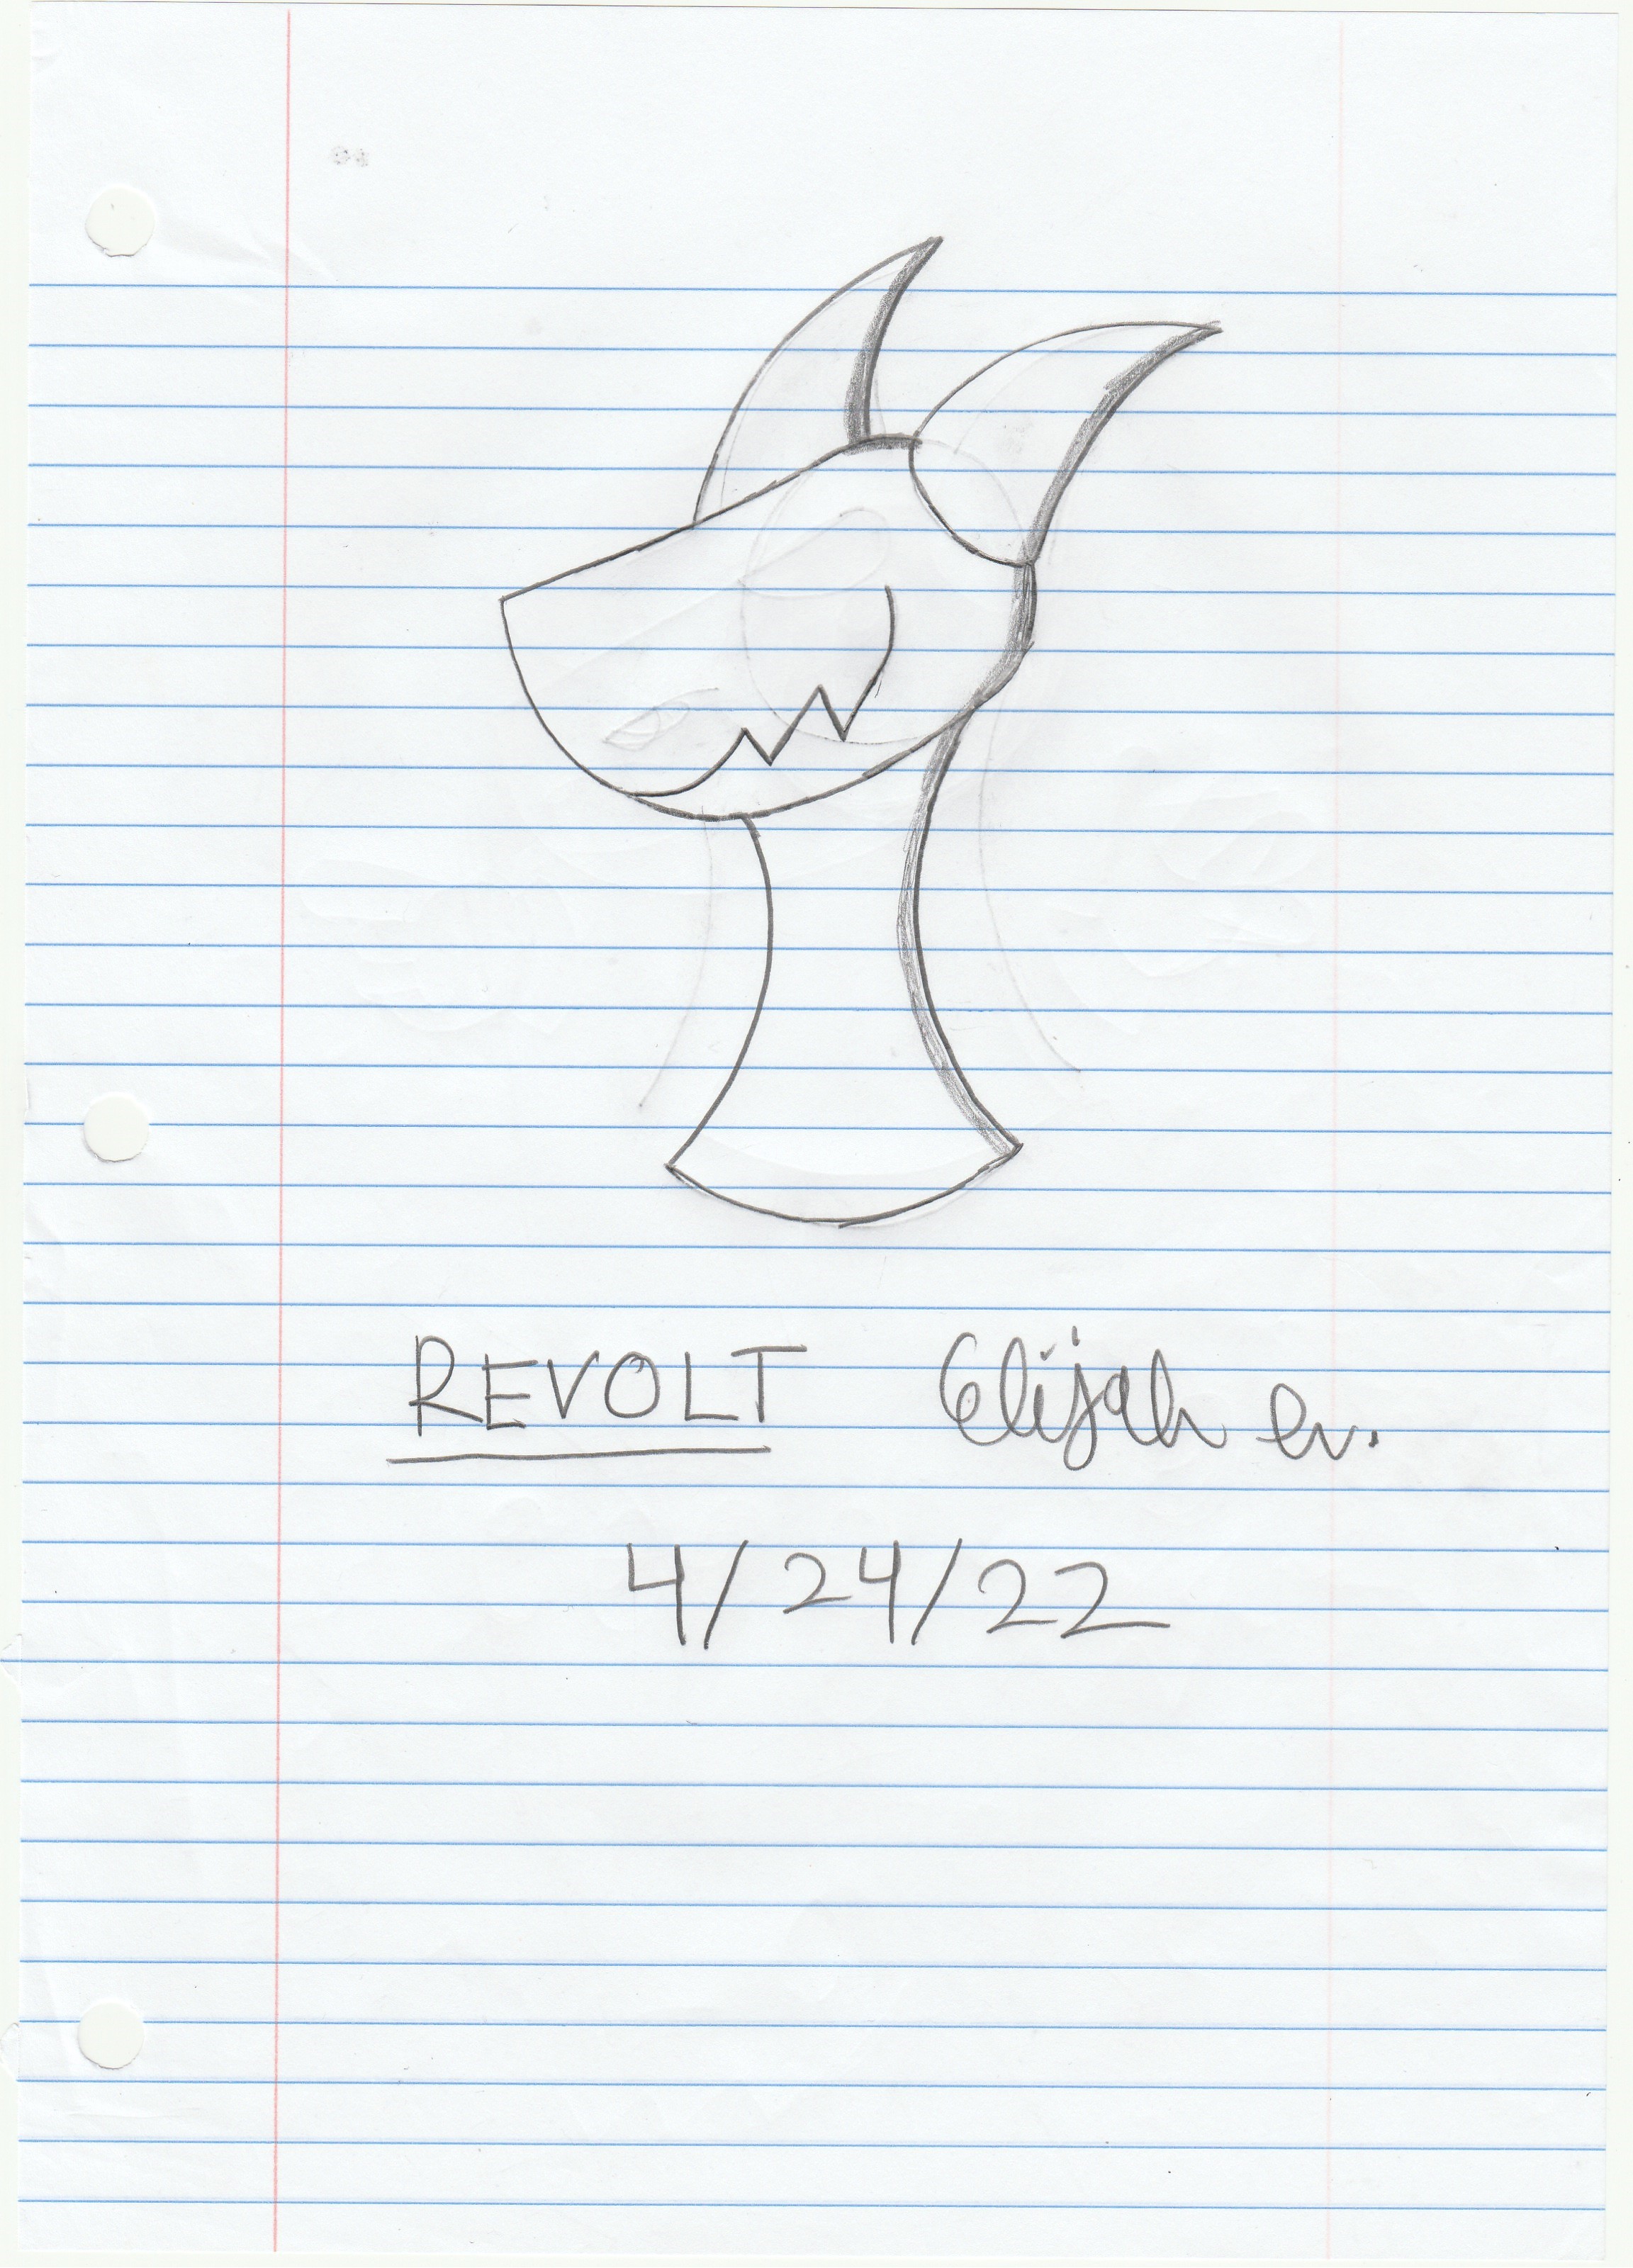 REVOLT Elijah ev.
4/24/22